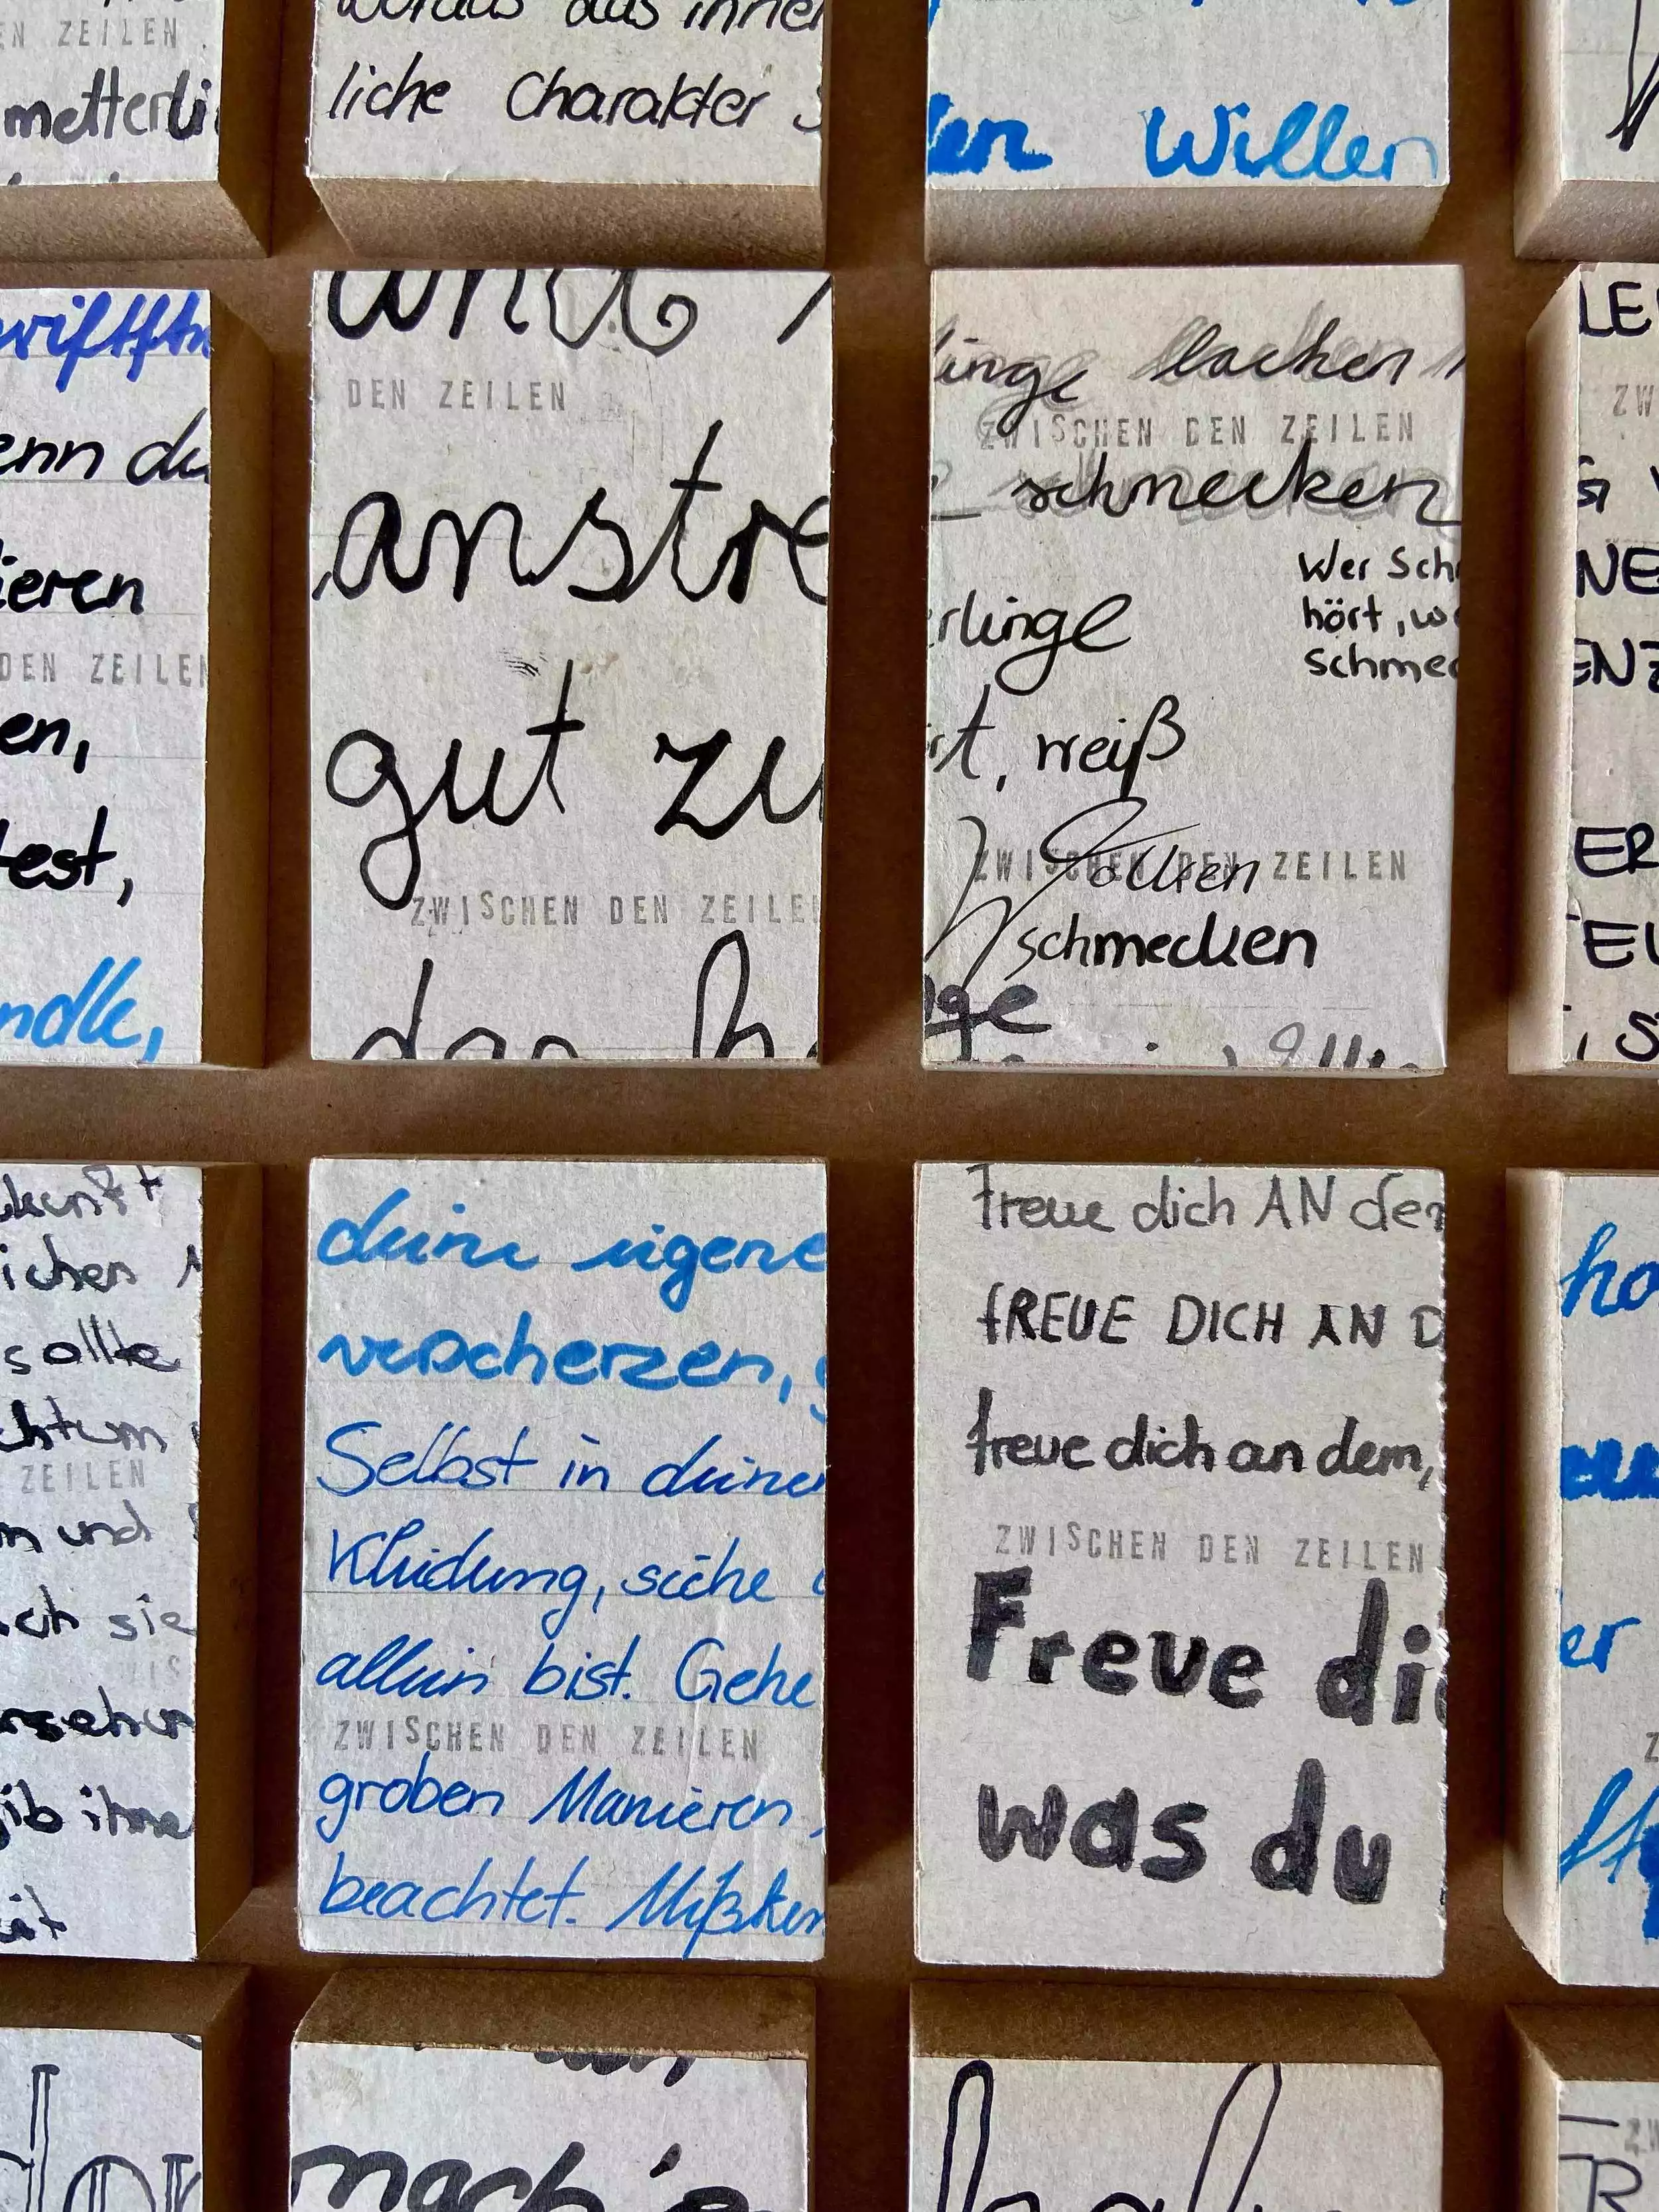 EN ZEILEN
metterli
woraus das inner
liche Charakter
en Willen
enn du
ieren
DEN ZEILEN
en,
test,
ndle,
und
DEN ZEILEN
anstre
gut zu
ZWISCHEN DEN ZEILEN
linge lachen
ZWISCHEN DEN ZEILEN
schmecken
Wer Sch
hört, we
schmec
rlinge
t, weiß
ZWISCHEN DEN ZEILEN
Wolken
schmecken
nge
LE
ZW
NE
ENZ
ER
TEU
, S
kunft
ichen
sollte
chtum
ZEILEN
m und
ich sie
WIS
ib ihne
deine eigene
verscherzen,
Selbst in deiner
Kleidung, siehe
allein bist. Gehe
ZWISCHEN DEN ZEILEN
groben Manieren,
beachtet. Mißken
freue dich AN dem
FREUE DICH AN D
freue dich an dem,
ZWISCHEN DEN ZEILEN
Freue dic
was du
ha
er
Z
nach